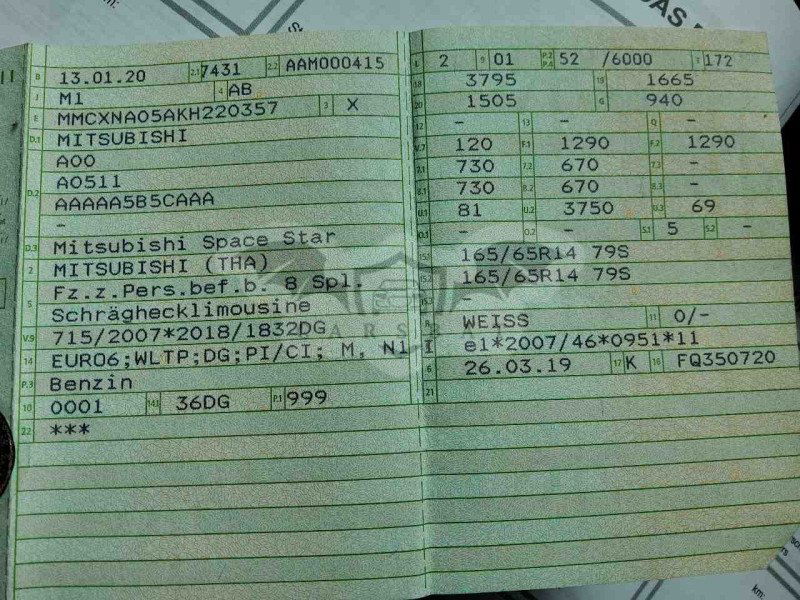 B 13.01.20 2.1 7431 2.2 AAM000415
J M1 4 AB
E MMCXNA05AKH220357 3 X
D.1 MITSUBISHI
A00
D.2 A0511
AAAAA5B5CAAA
-
D.3 Mitsubishi Space Star
2 MITSUBISHI (THA)
5 Fz.z.Pers.bef.b. 8 Spl.
Schräghecklimousine
V.9 715/2007*2018/1832DG
14 EURO6;WLTP;DG;PI/CI; M, N1 I
P.3 Benzin
10 0001 14.1 36DG P.1 999
22 ***
L 2 9 01 P.2 P.4 52 /6000 T 172
18 3795 19 1665
20 1505 G 940
12 - 13 - Q -
V.7 120 F.1 1290 F.2 1290
7.1 730 7.2 670 7.3 -
8.1 730 8.2 670 8.3 -
U.1 81 U.2 3750 U.3 69
O.1 - O.2 - S.1 5 S.2 -
15.1 165/65R14 79S
15.2 165/65R14 79S
-
R WEISS 11 0/-
K e1*2007/46*0951*11
6 26.03.19 17 K 16 FQ350720
21
km: